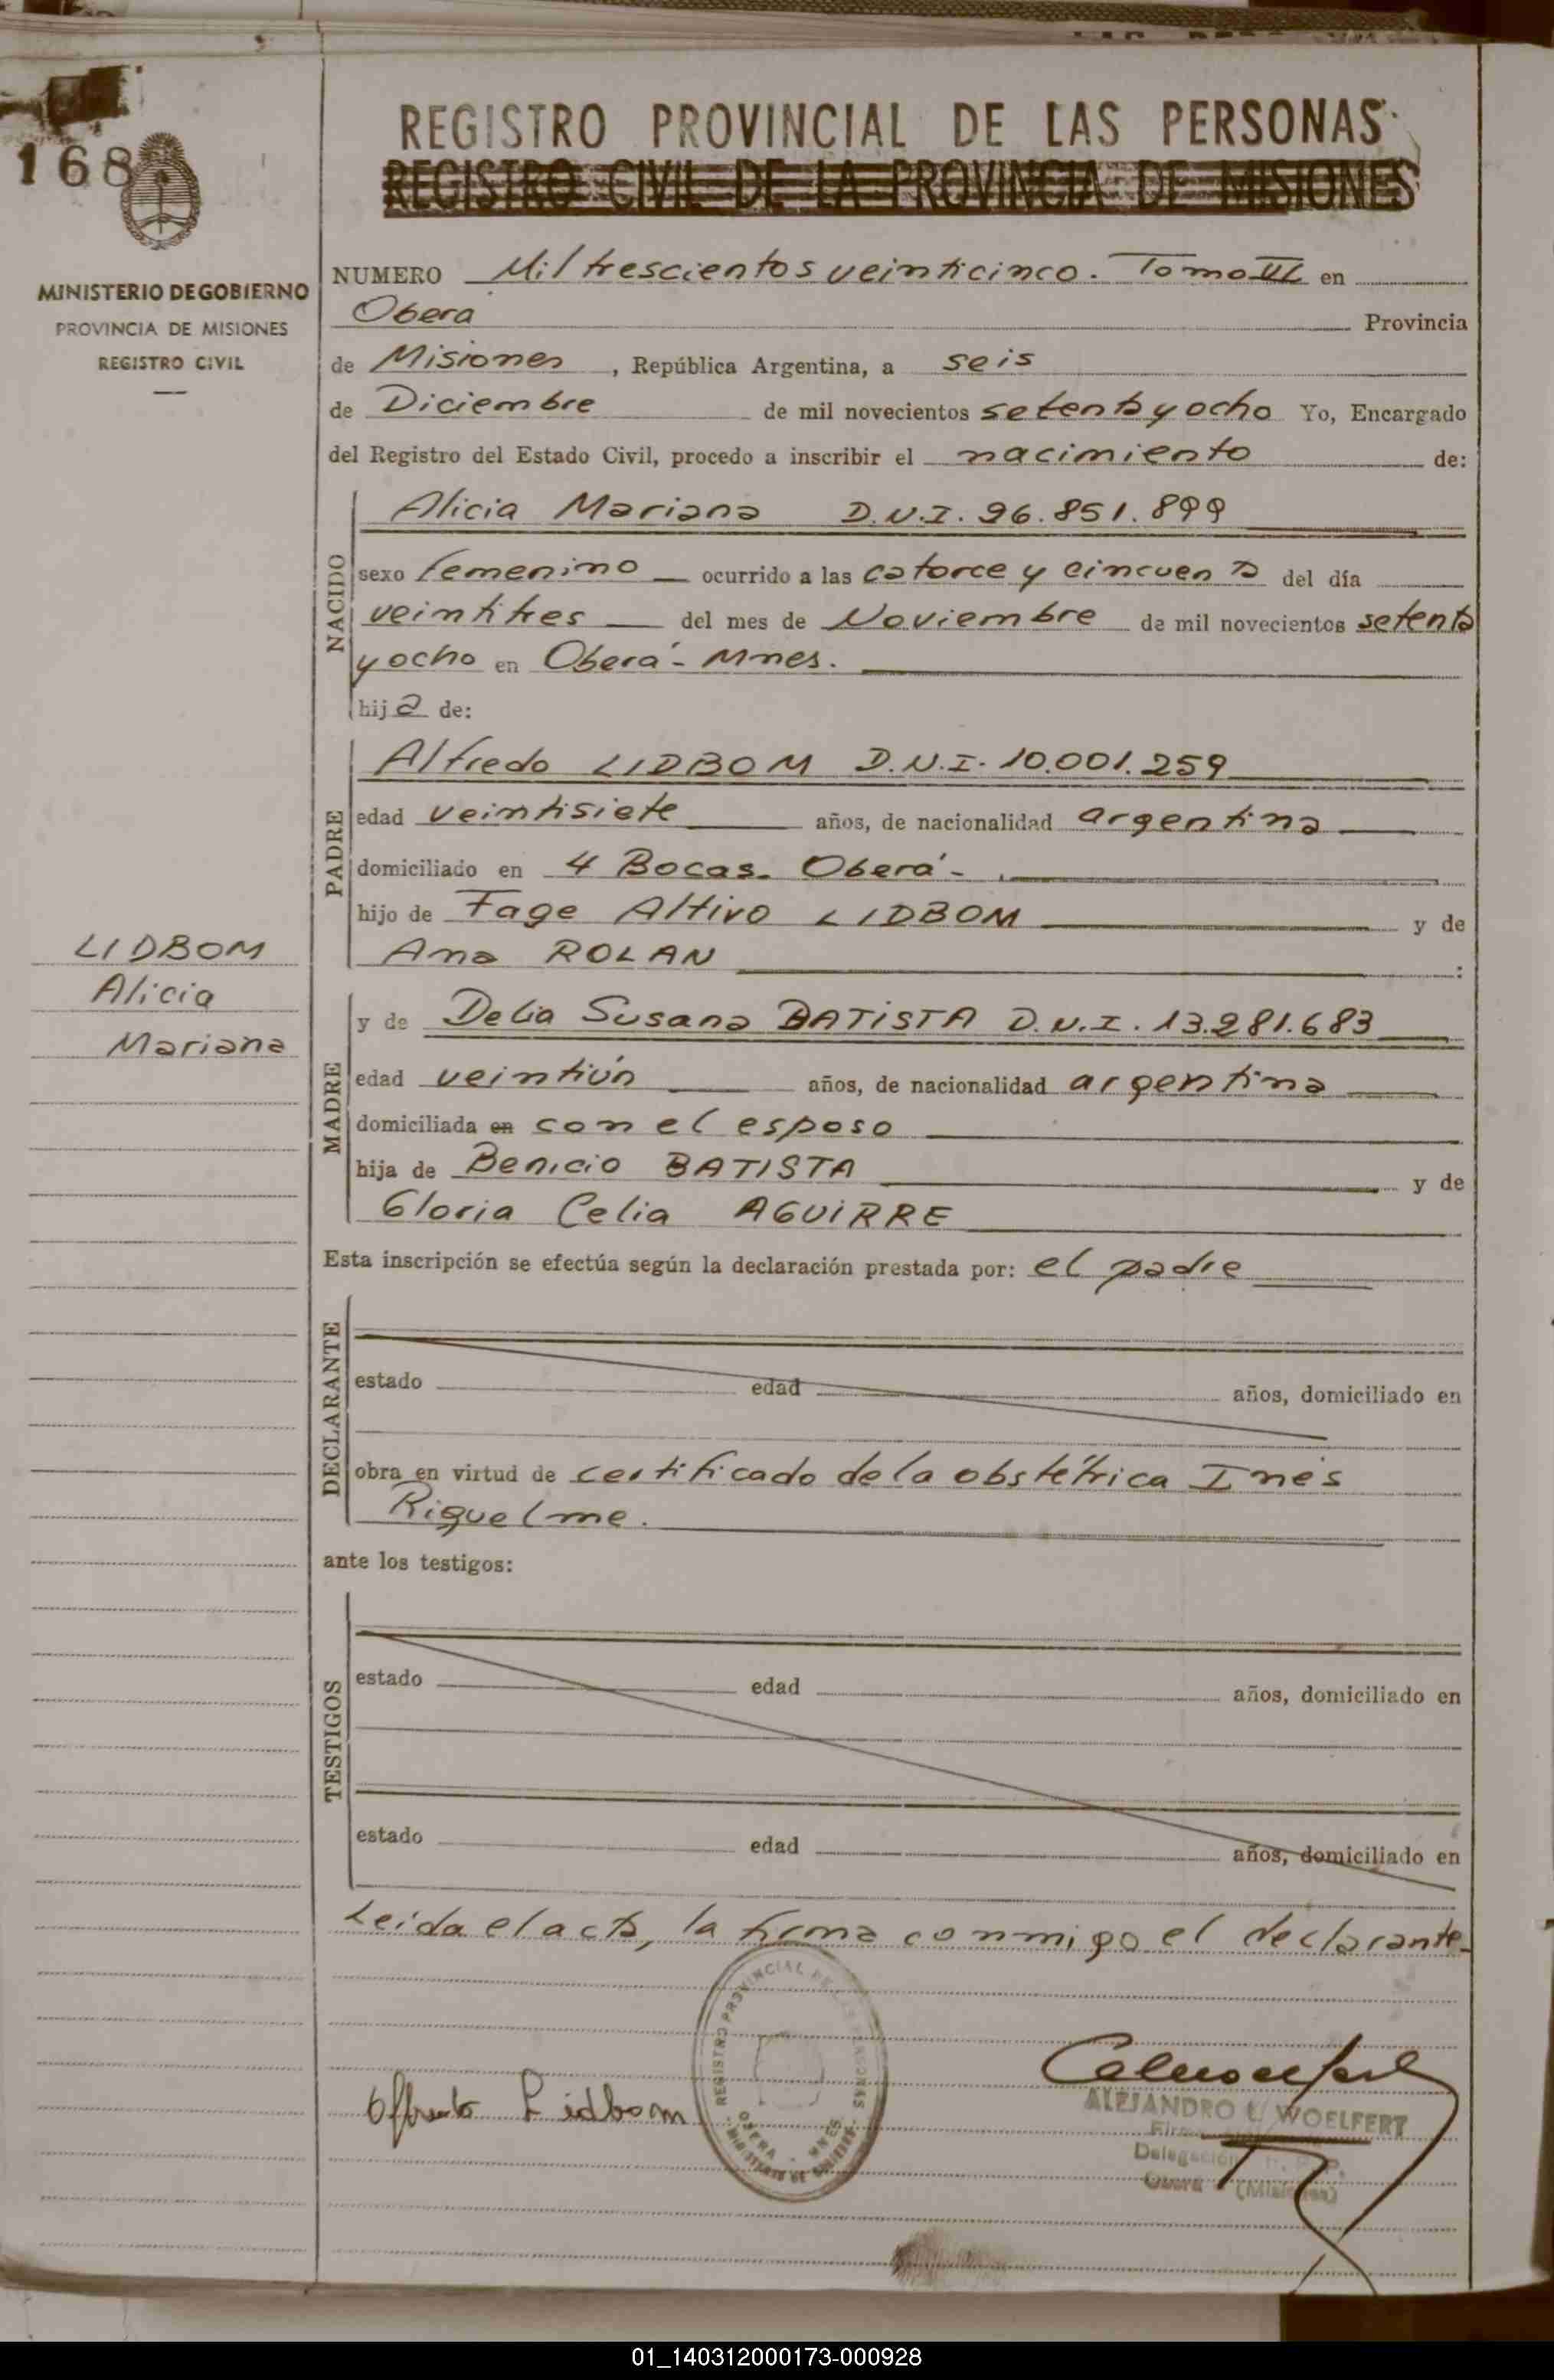 168
MINISTERIO DE GOBIERNO
PROVINCIA DE MISIONES
REGISTRO CIVIL
LIDBOM
Alicia
Mariana
REGISTRO PROVINCIAL DE LAS PERSONAS
REGISTRO CIVIL DE LA PROVINCIA DE MISIONES
NUMERO Mil trescientos veinticinco. Tomo III en
Oberá Provincia
de Misiones, República Argentina, a seis
de Diciembre de mil novecientos setenta y ocho Yo, Encargado
del Registro del Estado Civil, procedo a inscribir el nacimiento de:
NACIDO
Alicia Mariana D.N.I. 26.851.899
sexo femenino ocurrido a las catorce y cincuenta del día
veintitres del mes de Noviembre de mil novecientos setenta
y ocho en Oberá - Mnes.
hija de:
PADRE
Alfredo LIDBOM D.N.I. 10.001.259
edad veintisiete años, de nacionalidad argentina
domiciliado en 4 Bocas. Oberá -
hijo de Fage Altivo LIDBOM y de
Ana ROLAN :
MADRE
y de Delia Susana BATISTA D.N.I. 13.281.683
edad veintiún años, de nacionalidad argentina
domiciliada en con el esposo
hija de Benicio BATISTA y de
Gloria Celia AGUIRRE
Esta inscripción se efectúa según la declaración prestada por: el padre
DECLARANTE
estado edad años, domiciliado en
obra en virtud de certificado de la obstétrica Inés
Riquelme.
ante los testigos:
TESTIGOS
estado edad años, domiciliado en
estado edad años, domiciliado en
Leida el acta, la firma conmigo el declarante-
REGISTRO PROVINCIAL DE LAS PERSONAS
OBERA - MNES
MINISTERIO DE GOBIERNO
Lidbom
ALEJANDRO L. WOELFERT
Delegación
Oberá (Misiones)
01_140312000173-000928